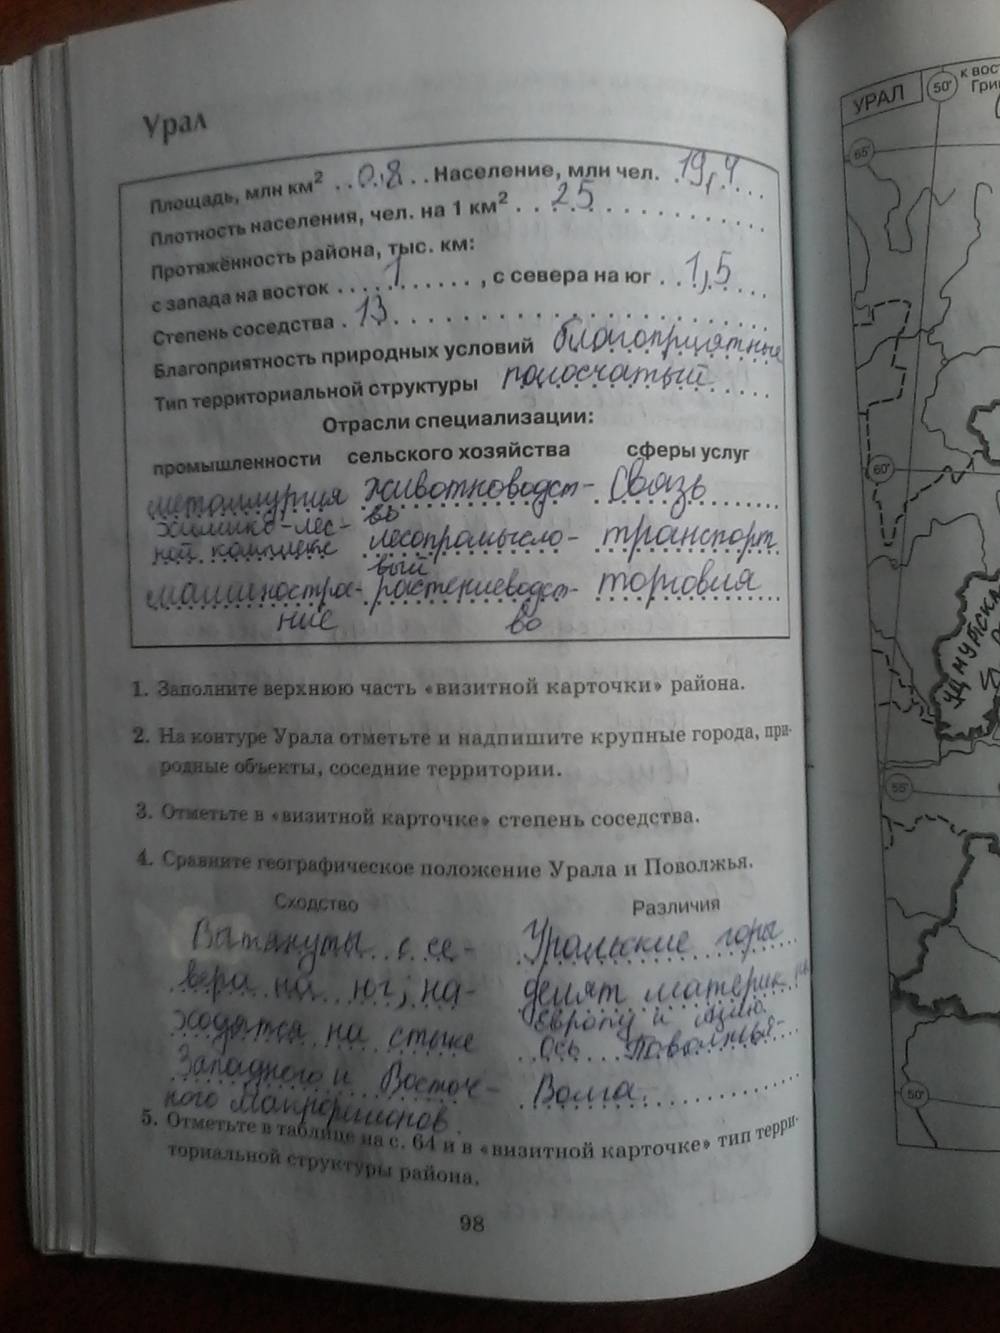 Урал
Площадь, млн км² . . 0,8 . . Население, млн чел. . 19,4 . .
Плотность населения, чел. на 1 км² . . . 25 . . . . . . . . .
Протяжённость района, тыс. км:
с запада на восток . . . . 1 . . . . . . , с севера на юг . . 1,5 . . .
Степень соседства . 13 . . . . . . . . . . . . . . . . .
Благоприятность природных условий благоприятные
Тип территориальной структуры полосчатый
Отрасли специализации:
промышленности сельского хозяйства сферы услуг
металлургия животноводст- связь
химико-лес- во
ной комплекс лесопромысло- транспорт
вый
машиностро- растениеводст- торговля
ние во
1. Заполните верхнюю часть «визитной карточки» района.
2. На контуре Урала отметьте и надпишите крупные города, при-
родные объекты, соседние территории.
3. Отметьте в «визитной карточке» степень соседства.
4. Сравните географическое положение Урала и Поволжья.
Сходство Различия
Вытянуты с се- Уральские горы
вера на юг; на- делят материк на
Европу и Азию.
ходятся на стыке ось Поволжья-
Западного и Восточ- Волга.
ного макрорегионов.
5. Отметьте в таблице на с. 64 и в «визитной карточке» тип терри-
ториальной структуры района.
98
УРАЛ
50°
к вост
Грин
65°
60°
УДМУРТСКА
55°
50°